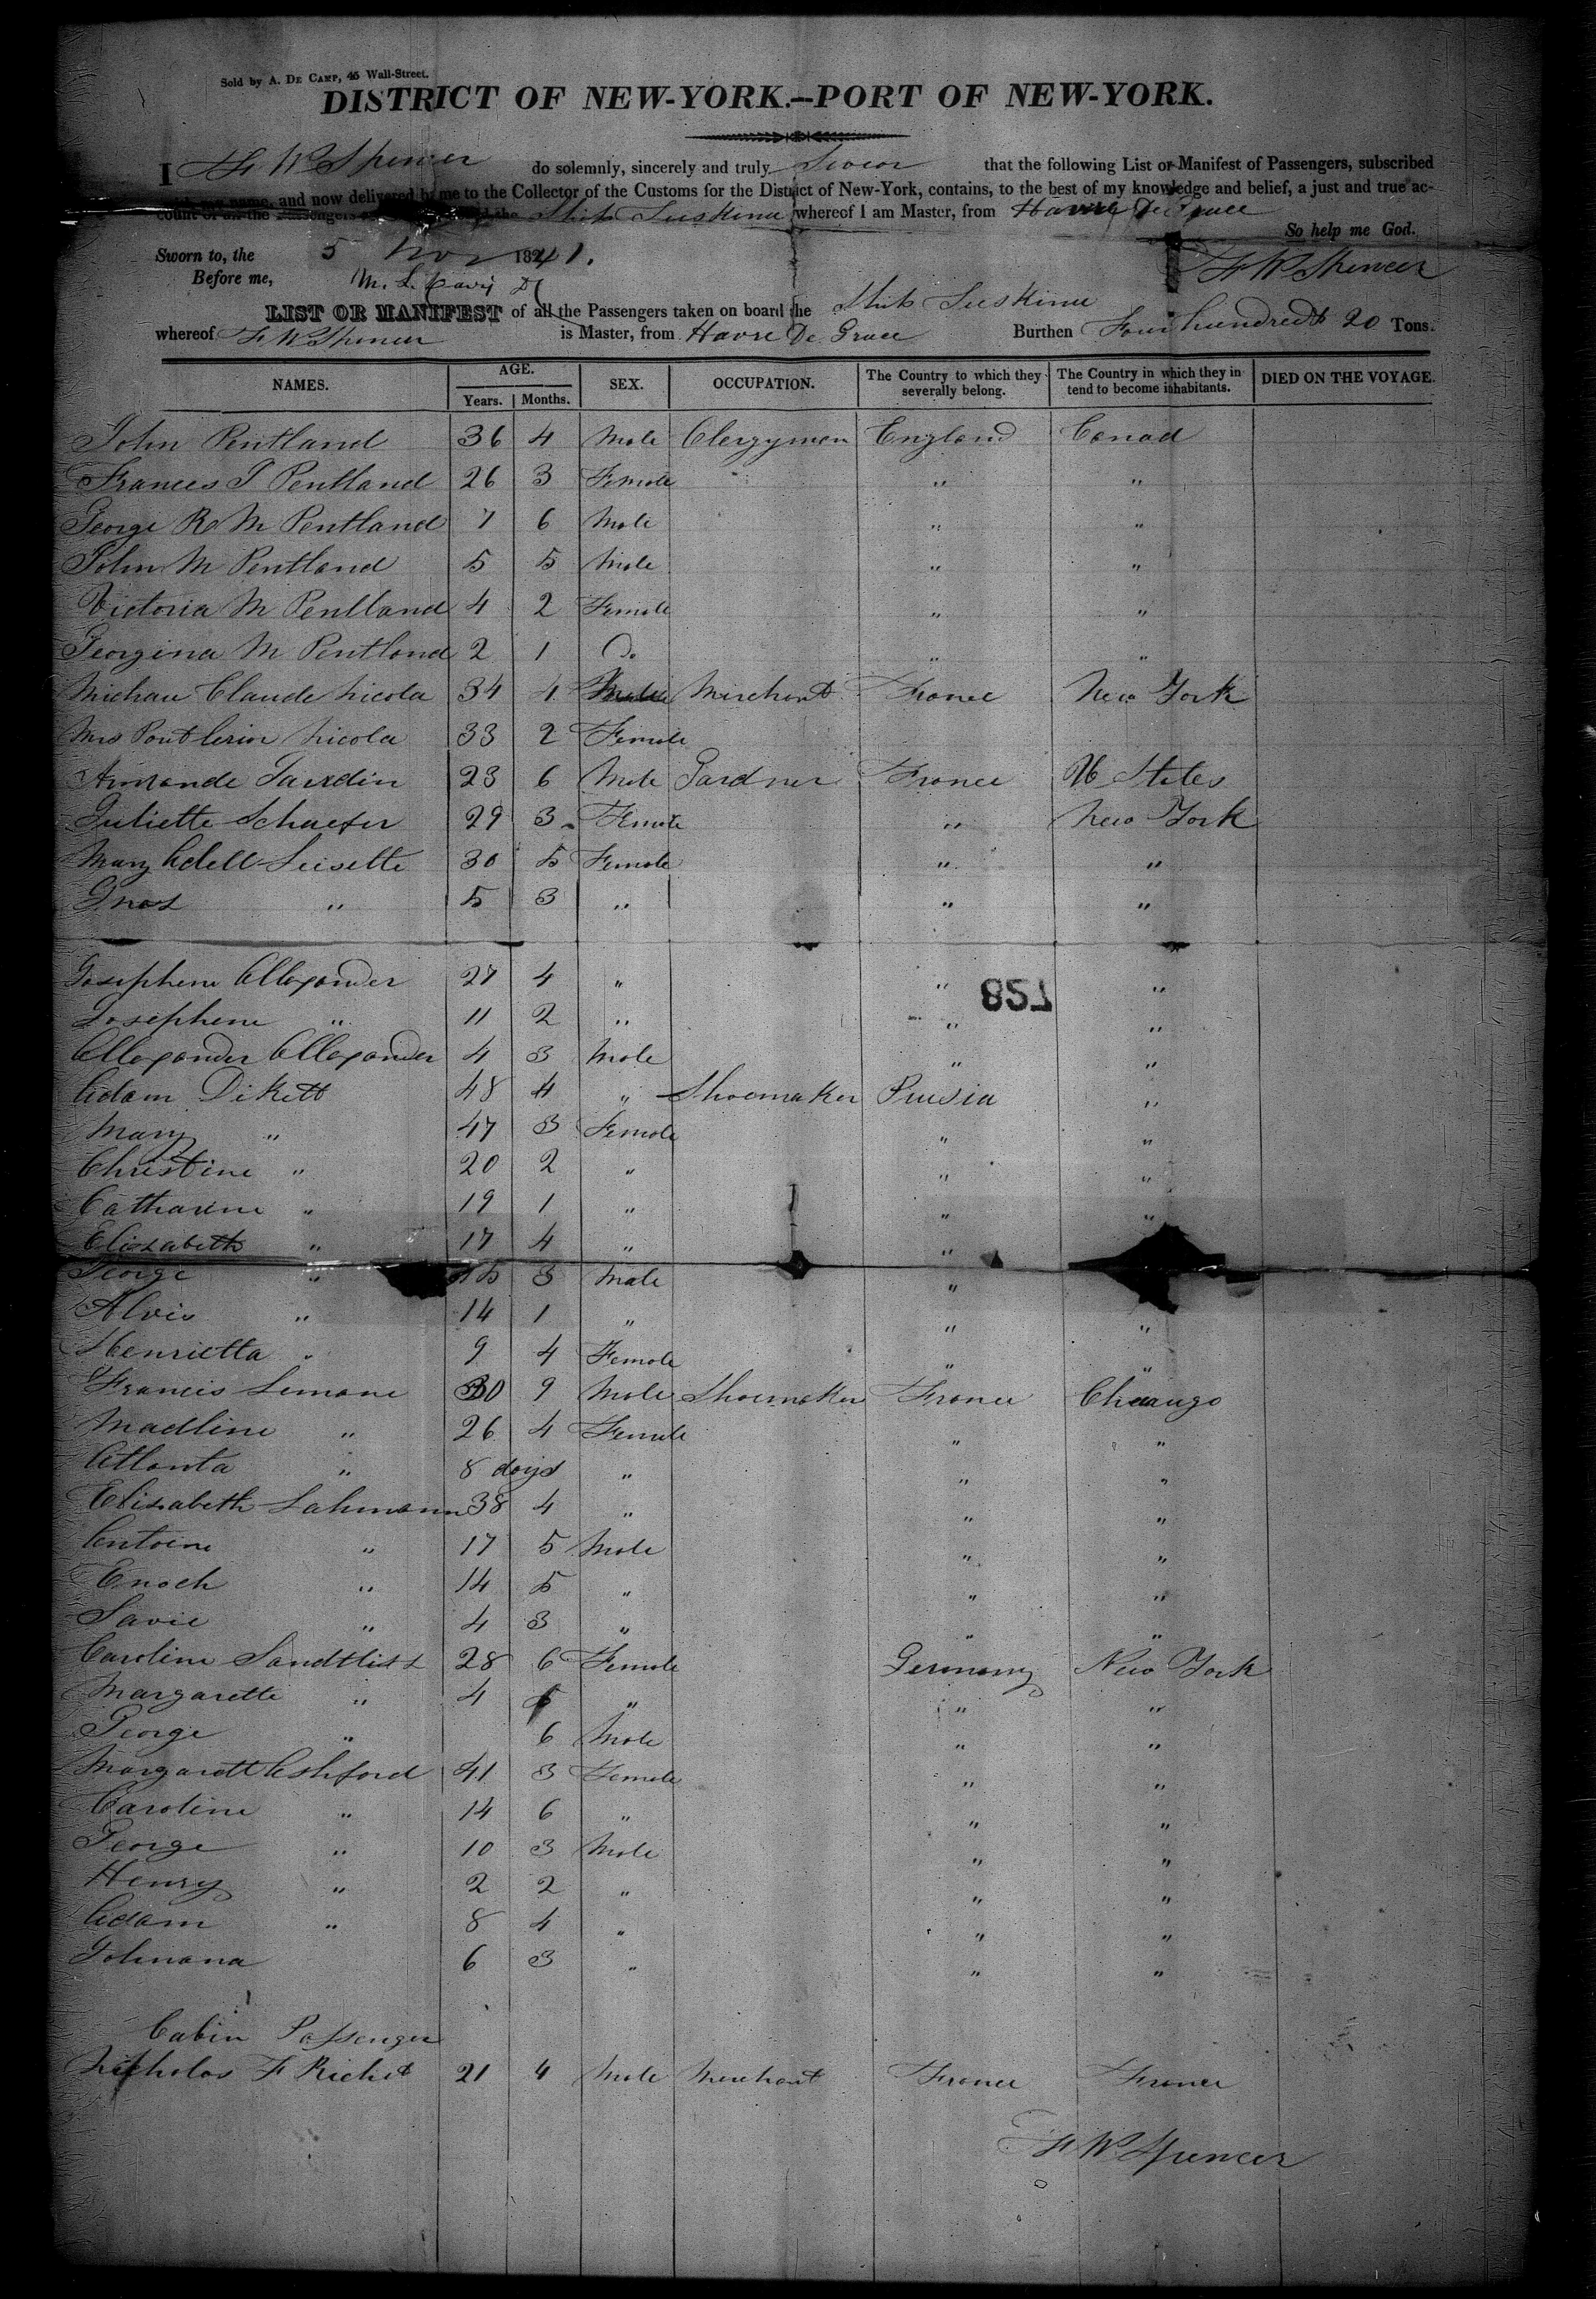 Sold by A. DE CAMP, 45 Wall-Street.
DISTRICT OF NEW-YORK.—PORT OF NEW-YORK.
I F W Spencer do solemnly, sincerely and truly Swear that the following List or Manifest of Passengers, subscribed
name, and now delivered by me to the Collector of the Customs for the District of New-York, contains, to the best of my knowledge and belief, a just and true ac-
count of all the Passengers the Ship Susskina whereof I am Master, from Havre De Grace
So help me God.
Sworn to, the 5 Nov 1841.
F W Spencer
Before me,
LIST OR MANIFEST of all the Passengers taken on board the Ship Susskina
whereof F W Spencer is Master, from Havre De Grace Burthen Four hundredt 20 Tons.
NAMES. AGE. Years. Months. SEX. OCCUPATION. The Country to which they severally belong. The Country in which they intend to become inhabitants. DIED ON THE VOYAGE.
John Pentland 36 4 Male Clergyman England Canad
Frances J Pentland 26 3 Female " "
George R M Pentland 7 6 Male " "
John M Pentland 5 5 Male " "
Victoria M Pentland 4 2 Female " "
Georgina M Pentland 2 1 Do " "
Michau Claude Nicola 34 4 Male Merchant France New York
Mrs Nicola 33 2 Female
Armande Jardin 23 6 Male Gardner France U States
Juliette Schaefer 29 3 Female " New York
Mary Adell Luisette 30 5 Female " "
" 5 3 " " "
Josephine Allexander 27 4 " " "
Josephene " 11 2 " " "
Allexander Allexander 4 3 Male " "
Adam Dikett 48 4 " Shoemaker Prusia "
Mary " 47 3 Female " "
Christine " 20 2 " " "
Catharine " 19 1 " " "
Elizabeth " 17 4 " "
George " 15 3 Male "
Alvis " 14 1 " " "
Henrietta " 9 4 Female " "
Francis Lemane 30 9 Male Shoemaker France Chicaugo
Madline " 26 4 Female " "
Atlanta " 8 days " " "
Elizabeth Lahmann 38 4 " " "
Antoine " 17 5 Male " "
Enoch " 14 5 " " "
Savie " 4 3 " " "
Caroline 28 6 Female Germany New York
Margarette " 4 " " "
George " 6 Male " "
Margarett Ashford 41 3 Female " "
Caroline " 14 6 " " "
George " 10 3 Male " "
Henry " 2 2 " " "
Adam " 8 4 " " "
Johnana 6 3 " " "
Cabin Passenger
Nicholas F Richet 21 4 Male Merchant France France
F W Spencer